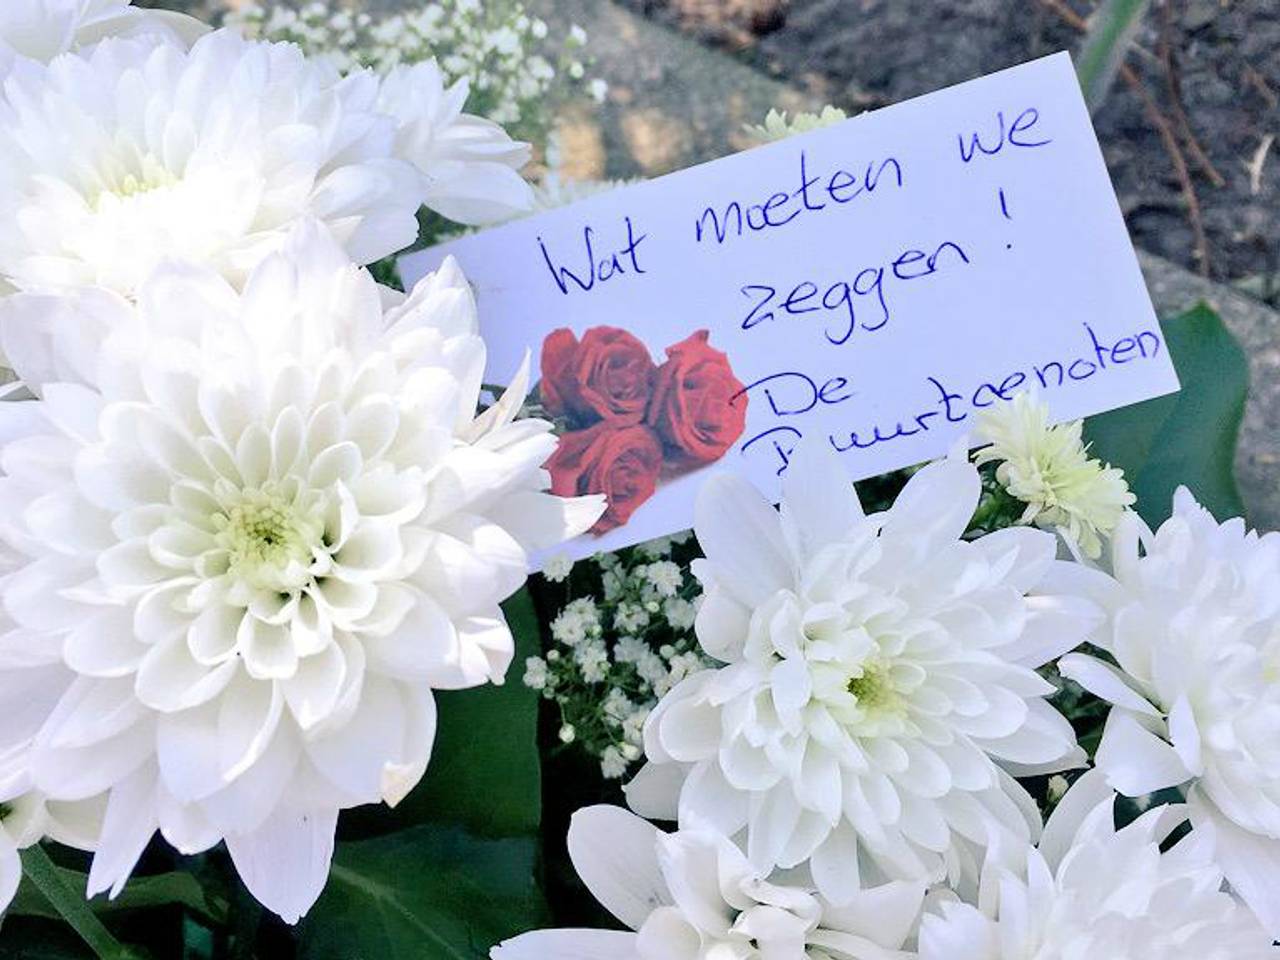 Wat moeten we
zeggen!
De
Buurtgenoten